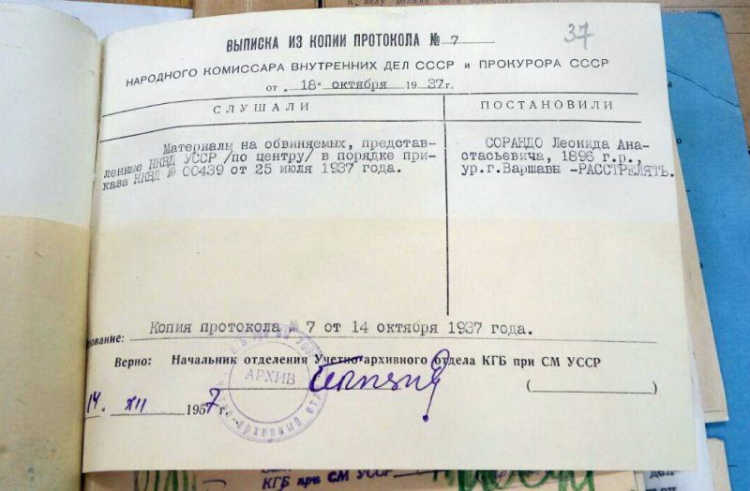 ВЫПИСКА ИЗ КОПИИ ПРОТОКОЛА № 7
37
НАРОДНОГО КОМИССАРА ВНУТРЕННИХ ДЕЛ СССР и ПРОКУРОРА СССР
от „18" октября 1937г.
СЛУШАЛИ
ПОСТАНОВИЛИ
Материалы на обвиняемых, представ-
ленные НКВД УССР /по центру/ в порядке при-
каза НКВД № 00439 от 25 июля 1937 года.
СОРАНДО Леонида Ана-
стасьевича, 1896 г.р.,
ур.г.Варшавы -РАССТРЕЛЯТЬ.
ование: Копия протокола № 7 от 14 октября 1937 года.
Верно: Начальник отделения Учетно-архивного отдела КГБ при СМ УССР
АРХИВ
( )
14. XII 1957 г.
КГБ при СМ УССР